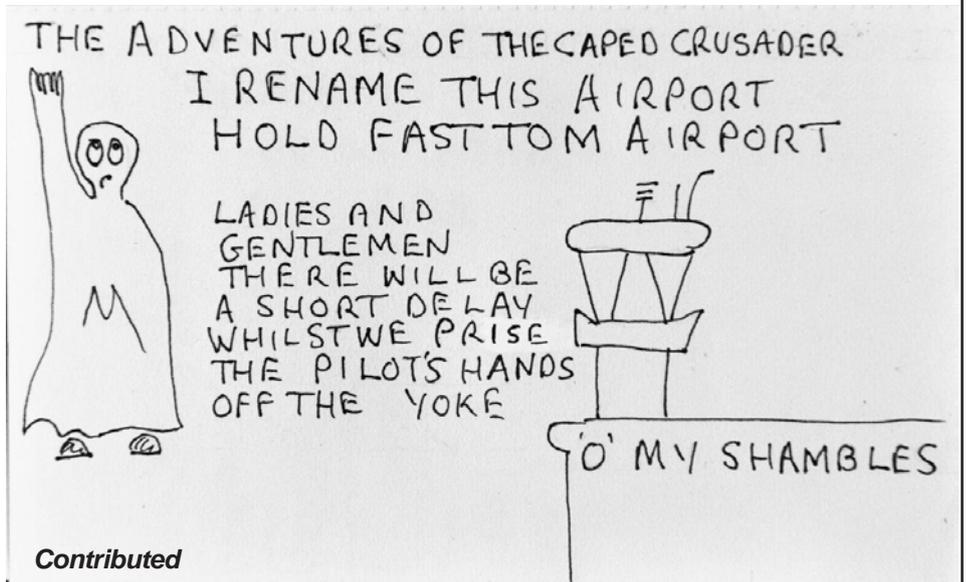 THE ADVENTURES OF THE CAPED CRUSADER
I RENAME THIS AIRPORT
HOLD FAST TOM AIRPORT
LADIES AND
GENTLEMEN
THERE WILL BE
A SHORT DELAY
WHILST WE PRISE
THE PILOT'S HANDS
OFF THE YOKE
'O' MY SHAMBLES
M
Contributed